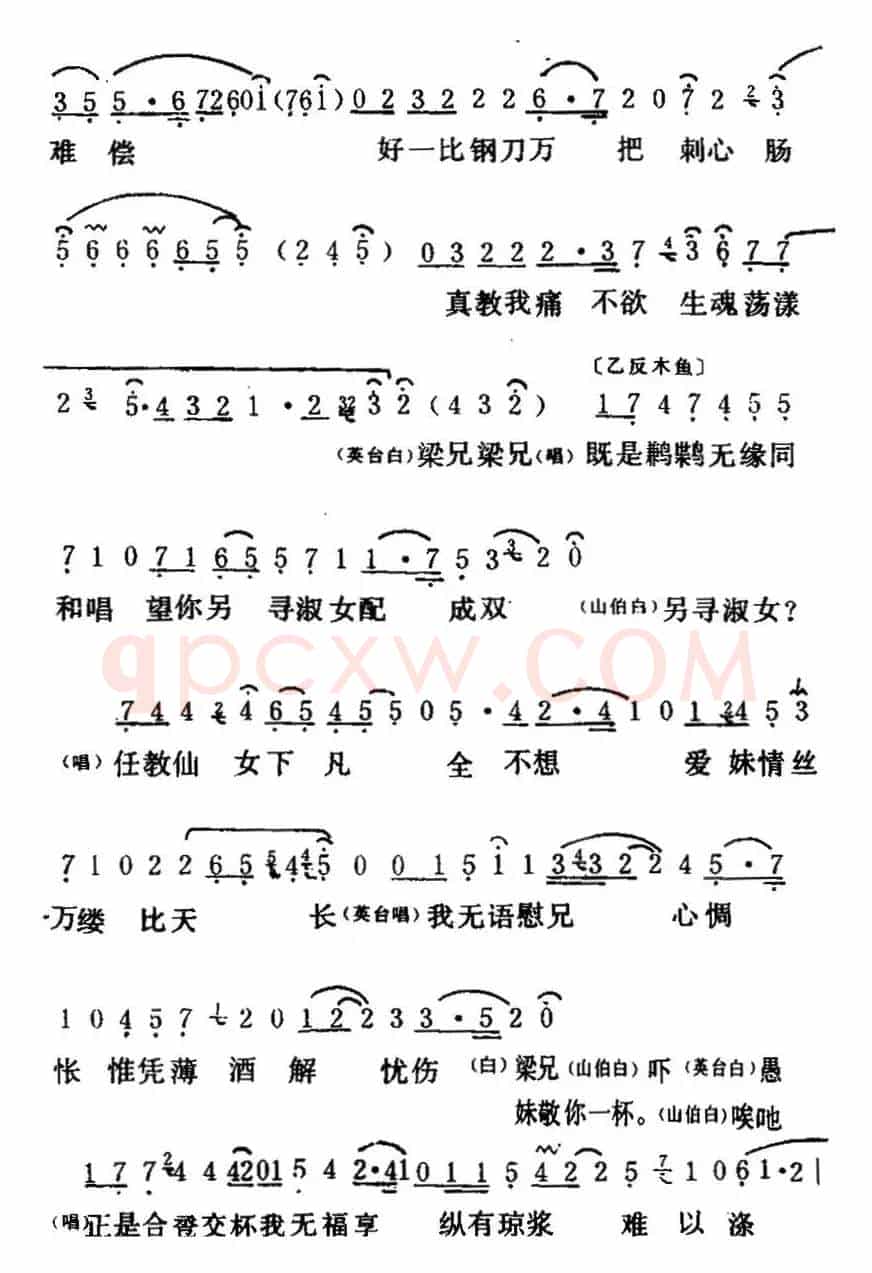 3 5 5 · 6 7 2 6 0 i (7 6 i) 0 2 3 2 2 2 6 · 7 2 0 7 2 2 3
难偿 好一比钢刀万 把 刺心 肠
5 6 6 6 6 5 5 (2 4 5) 0 3 2 2 2 2 · 3 7 4 3 6 7 7
真教我痛 不欲 生魂荡漾
〔乙反木鱼〕
2 3 5 · 4 3 2 1 · 2 32 3 2 (4 3 2) 1 7 4 7 4 5 5
(英台白)梁兄梁兄(唱) 既是鹣鹣无缘同
7 1 0 7 1 6 5 5 7 1 1 · 7 5 3 3 2 0
和唱 望你另 寻淑女配 成双 (山伯白)另寻淑女?
qpcxw.COM
7 4 4 2 4 6 5 4 5 5 0 5 · 4 2 · 4 1 0 1 2 4 5 3
(唱) 任教仙 女下 凡 全 不想 爱 妹情丝
7 1 0 2 2 6 5 5 4 4 5 0 0 1 5 1 1 3 4 3 2 2 4 5 · 7
万缕 比天 长(英台唱)我无语慰兄 心惆
1 0 4 5 7 1 2 0 1 2 2 3 3 · 5 2 0
怅 惟凭薄 酒 解 忧伤 (白)梁兄(山伯白)吓(英台白)愚
妹敬你一杯。(山伯白)唉吔
1 7 7 2 4 4 4 2 0 1 5 4 2 · 4 1 0 1 1 5 4 2 2 5 7 1 0 6 1 · 2 |
(唱)正是合卺交杯我无福享 纵有琼浆 难 以 涤